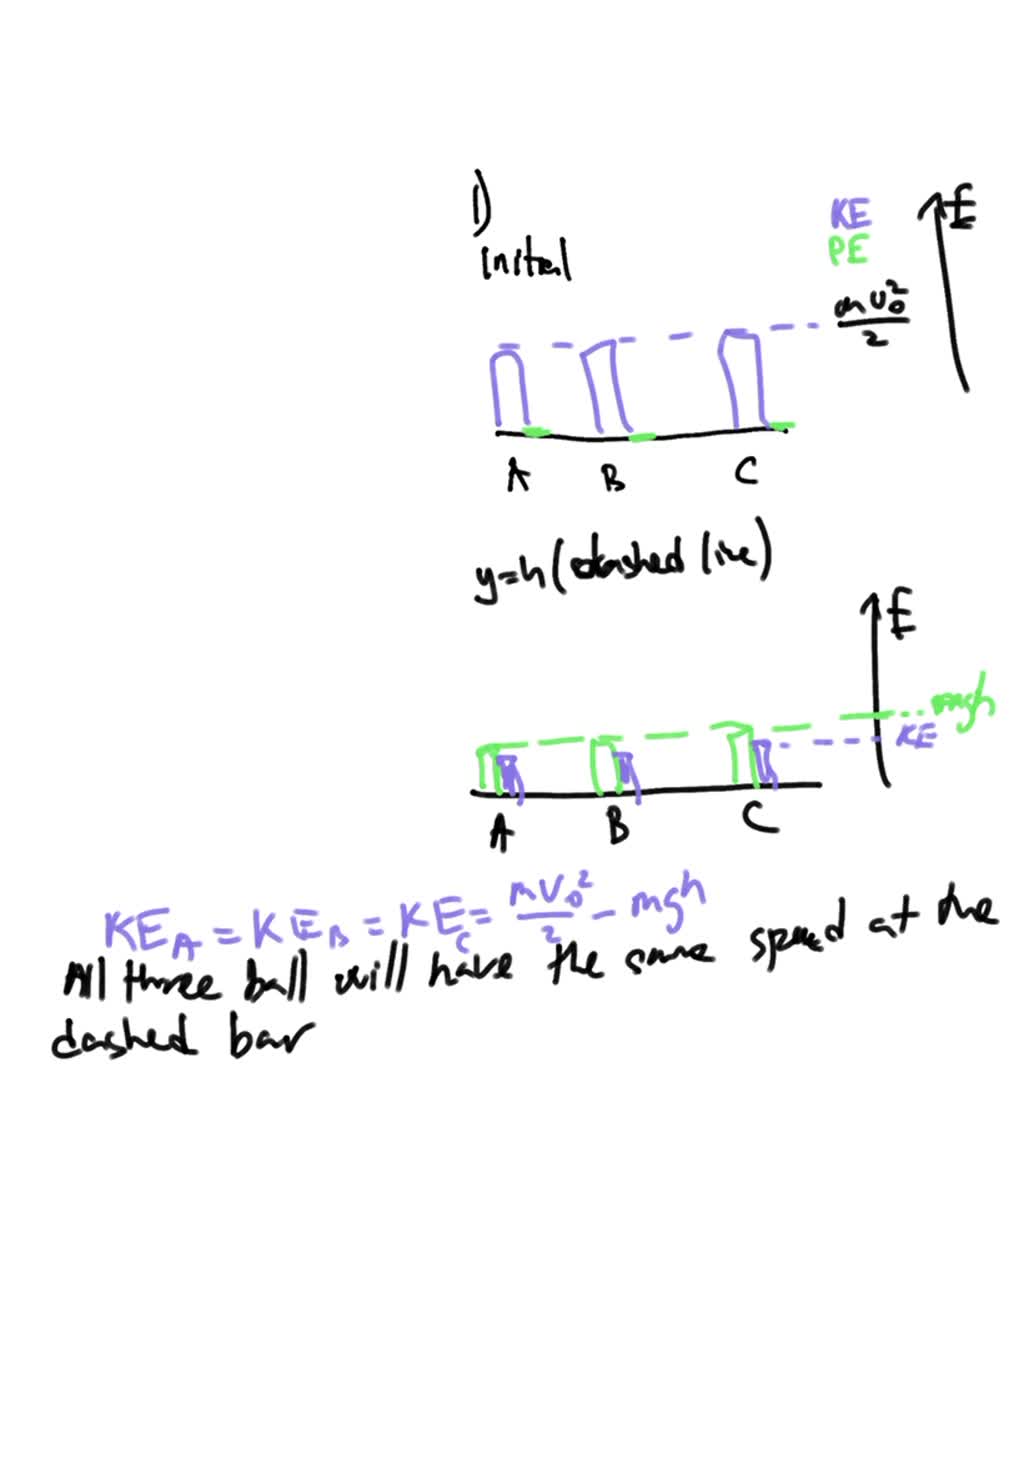 1)
initial
KE
PE
E
mv₀²/2
A B C
y=h (dashed line)
E
mgh
KE
A B C
KE_A = KE_B = KE_C = mv₀²/2 - mgh
All three ball will have the same speed at the
dashed bar